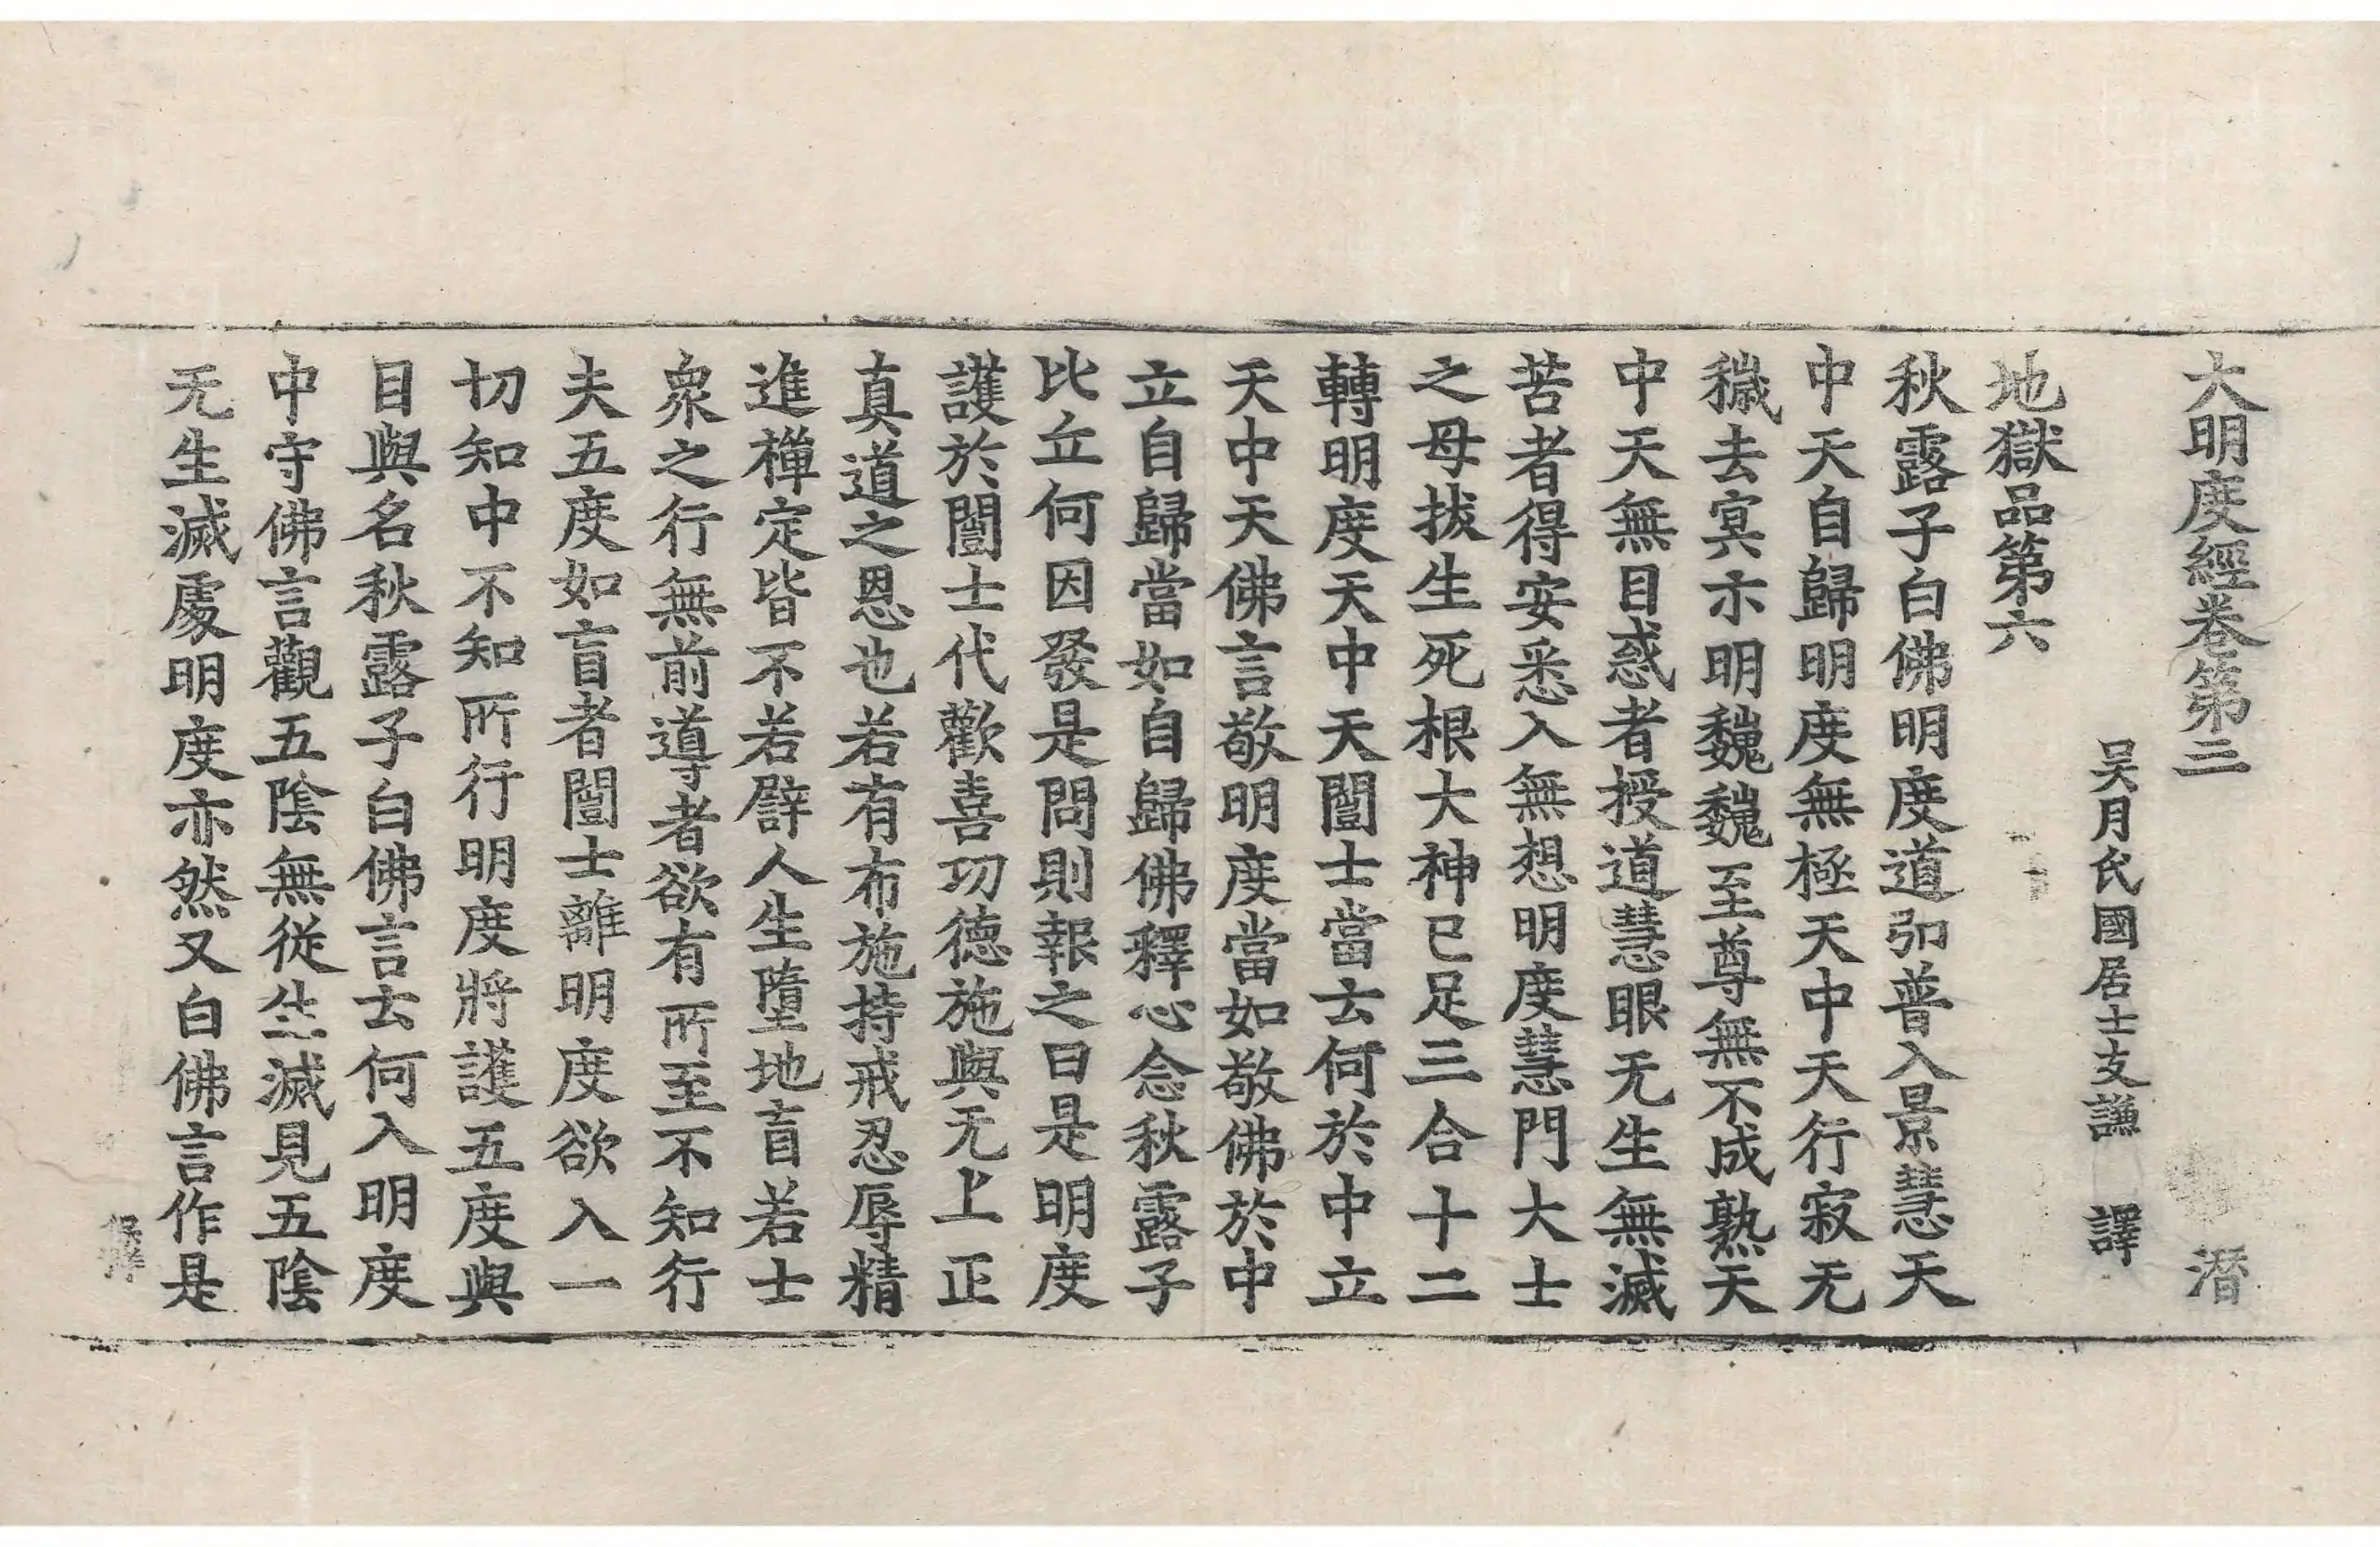 大明度經卷第三　潛
吴月氏國居士支謙　譯
地獄品第六
秋露子白佛明度道弘普入景慧天
中天自歸明度無極天中天行寂无
穢去冥示明魏魏至尊無不成熟天
中天無目惑者授道慧眼无生無滅
苦者得安悉入無想明度慧門大士
之母拔生死根大神已足三合十二
轉明度天中天闓士當去何於中立
天中天佛言敬明度當如敬佛於中
立自歸當如自歸佛釋心念秋露子
比丘何因發是問則報之曰是明度
護於闓士代歡喜功德施與无上正
真道之恩也若有布施持戒忍辱精
進禪定皆不若譬人生墮地盲若士
衆之行無前導者欲有所至不知行
夫五度如盲者闓士離明度欲入一
切知中不知所行明度將護五度與
目與名秋露子白佛言去何入明度
中守佛言觀五陰無從生滅見五陰
无生滅處明度亦然又白佛言作是